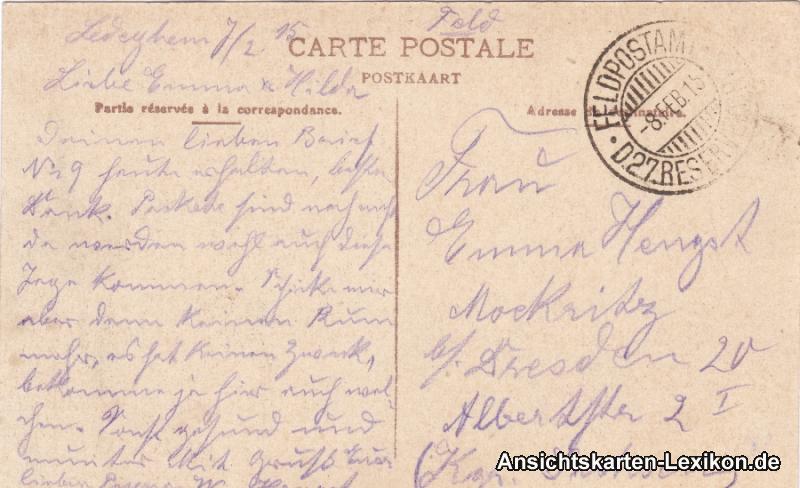 Ledeghem 7/2 15
Feld
CARTE POSTALE
POSTKAART
Liebe Emma & Hilda
Partie réservée à la correspondance.
Adresse
Deinen lieben Brief
No 9 heute erhalten, besten
Dank. Packete sind noch nicht
da werden wohl auch diese
Tage kommen. Schicke mir
aber dann keinen Rum
mehr, es hat keinen Zweck,
bekomme ja hier auch wel-
chen. Sonst gesund und
munter Mit Gruss Euer
lieber
Frau
Emma Hengst
Mockritz
b/. Dresden 20
Albertstr 2 I
FELDPOSTAMT
-8.FEB.15
D.27.RESERV
Ansichtskarten-Lexikon.de